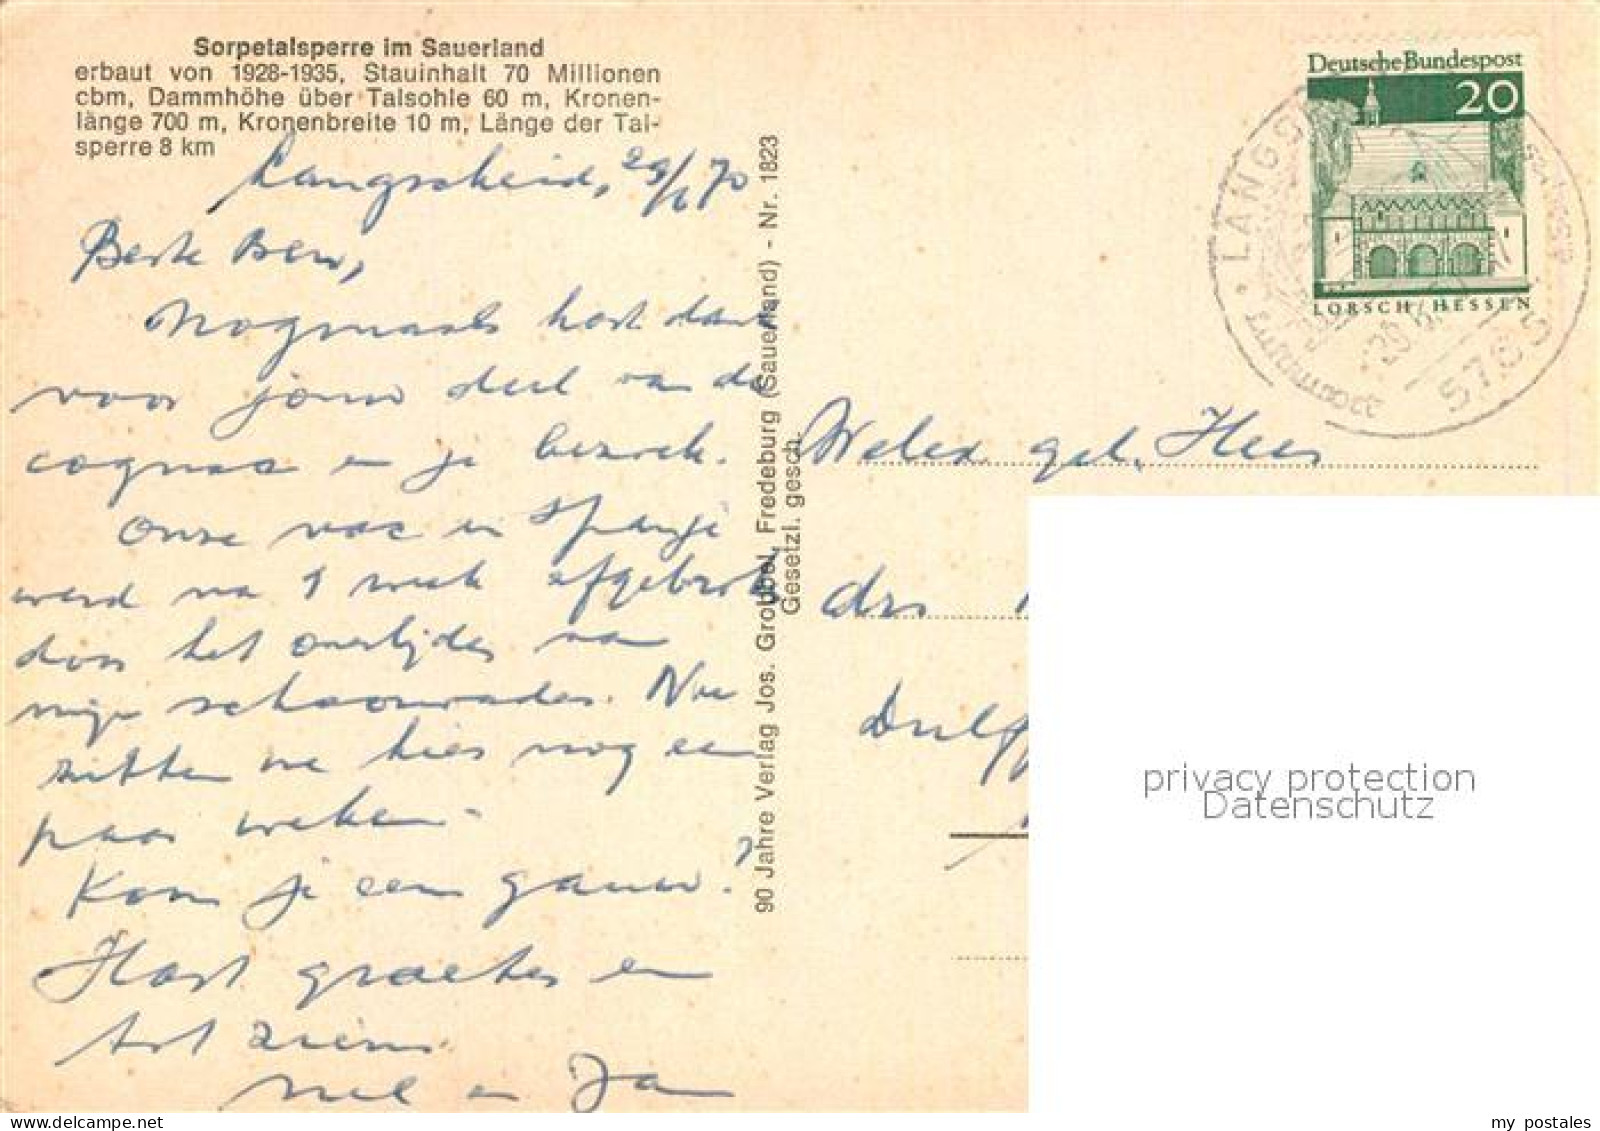 Sorpetalsperre im Sauerland
erbaut von 1928-1935, Stauinhalt 70 Millionen
cbm, Dammhöhe über Talsohle 60 m, Kronen-
länge 700 m, Kronenbreite 10 m, Länge der Tal-
sperre 8 km
Langscheid, 29/6 70
Beste Ben,
Nogmaals hart dank
voor jouw deel van de
cognac en je bezoek.
Onze vac in Spanje
werd na 1 week afgebroken
door het overlijden van
mijn schoonvader. Nu
zitten we hier nog een
paar weken.
Kom je een gauw?
Hart groeten en
tot ziens
Nel en Ja
90 Jahre Verlag Jos. Grobbel, Fredeburg (Sauerland) - Nr. 1823
Gesetzl. gesch.
Deutsche Bundespost
20
LORSCH/HESSEN
LANGS
geb. Hees
drs
privacy protection
Datenschutz
my postales